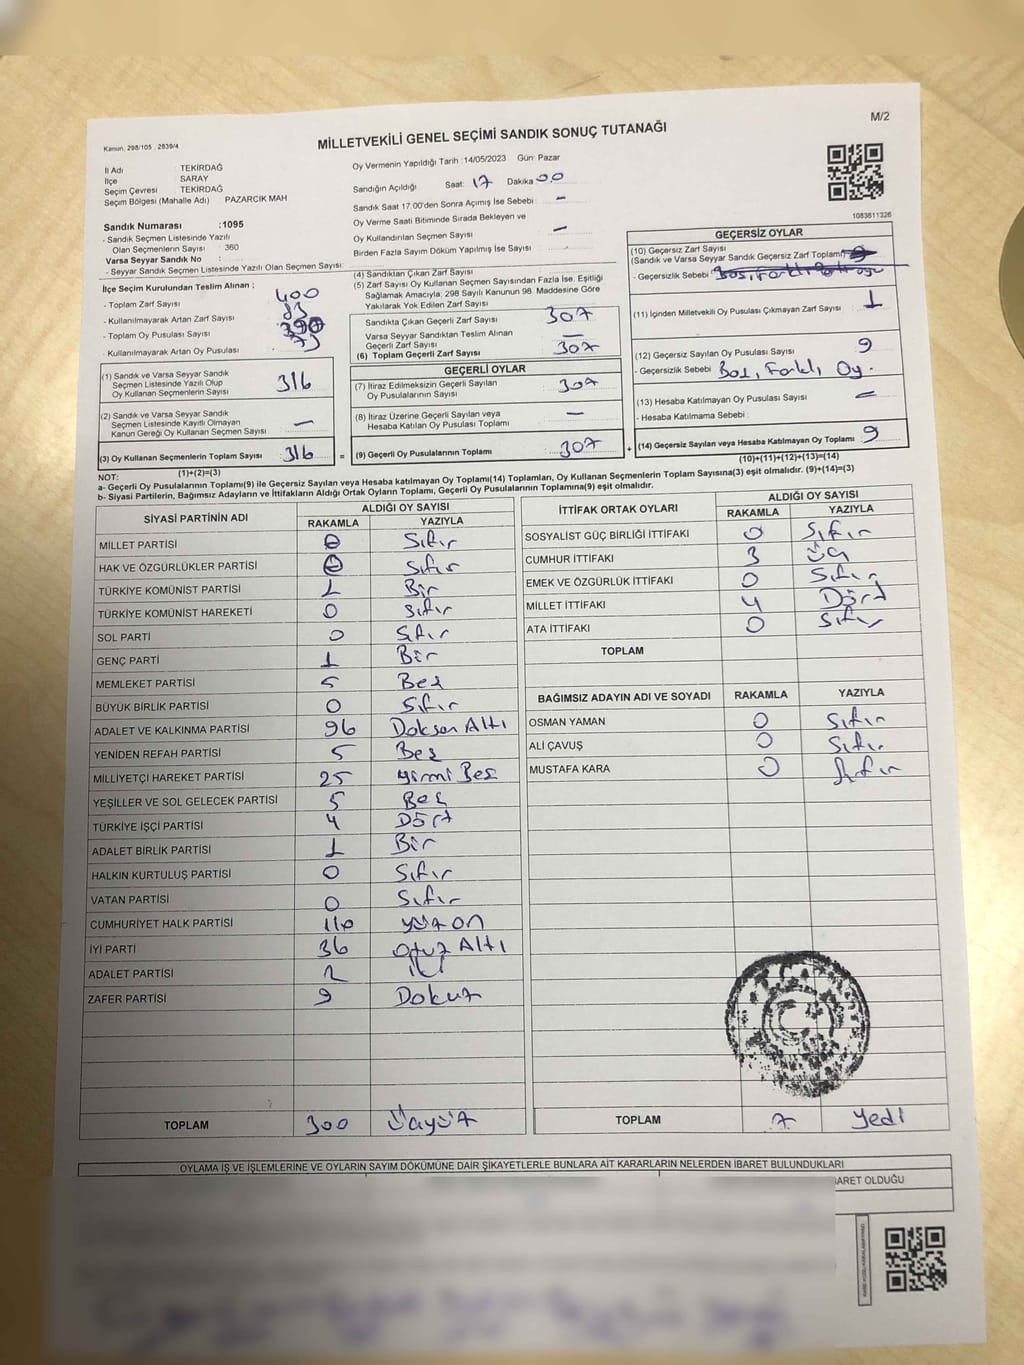 M/2
Kanun, 298/105 , 2839/4
MİLLETVEKİLİ GENEL SEÇİMİ SANDIK SONUÇ TUTANAĞI
İl Adı : TEKİRDAĞ
İlçe : SARAY
Seçim Çevresi : TEKİRDAĞ
Seçim Bölgesi (Mahalle Adı) PAZARCIK MAH
Sandık Numarası :1095
- Sandık Seçmen Listesinde Yazılı
Olan Seçmenlerin Sayısı : 360
Varsa Seyyar Sandık No :
- Seyyar Sandık Seçmen Listesinde Yazılı Olan Seçmen Sayısı:
Oy Vermenin Yapıldığı Tarih :14/05/2023 Gün: Pazar
Sandığın Açıldığı Saat: 17 Dakika 00
Sandık Saat 17.00'den Sonra Açımış İse Sebebi : -
Oy Verme Saati Bitiminde Sırada Bekleyen ve
Oy Kullandırılan Seçmen Sayısı : -
Birden Fazla Sayım Döküm Yapılmış İse Sayısı :
1083611326
İlçe Seçim Kurulundan Teslim Alınan ;
- Toplam Zarf Sayısı : 400
- Kullanılmayarak Artan Zarf Sayısı : 83
- Toplam Oy Pusulası Sayısı :
- Kullanılmayarak Artan Oy Pusulası : 73
(1) Sandık ve Varsa Seyyar Sandık
Seçmen Listesinde Yazılı Olup
Oy Kullanan Seçmenlerin Sayısı : 316
(2) Sandık ve Varsa Seyyar Sandık
Seçmen Listesinde Kayıtlı Olmayan
Kanun Gereği Oy Kullanan Seçmen Sayısı : -
(3) Oy Kullanan Seçmenlerin Toplam Sayısı : 316
(1)+(2)=(3)
(4) Sandıktan Çıkan Zarf Sayısı :
(5) Zarf Sayısı Oy Kullanan Seçmen Sayısından Fazla İse, Eşitliği
Sağlamak Amacıyla; 298 Sayılı Kanunun 98. Maddesine Göre
Yakılarak Yok Edilen Zarf Sayısı :
Sandıkta Çıkan Geçerli Zarf Sayısı : 307
Varsa Seyyar Sandıktan Teslim Alınan
Geçerli Zarf Sayısı : -
(6) Toplam Geçerli Zarf Sayısı : 307
GEÇERLİ OYLAR
(7) İtiraz Edilmeksizin Geçerli Sayılan
Oy Pusulalarının Sayısı : 307
(8) İtiraz Üzerine Geçerli Sayılan veya
Hesaba Katılan Oy Pusulası Toplamı : -
= (9) Geçerli Oy Pusulalarının Toplamı : 307 +
GEÇERSİZ OYLAR
(10) Geçersiz Zarf Sayısı
(Sandık ve Varsa Seyyar Sandık Geçersiz Zarf Toplamı)
- Geçersizlik Sebebi :
(11) İçinden Milletvekili Oy Pusulası Çıkmayan Zarf Sayısı : 1
(12) Geçersiz Sayılan Oy Pusulası Sayısı : 9
- Geçersizlik Sebebi : Boş, Farklı Oy.
(13) Hesaba Katılmayan Oy Pusulası Sayısı : -
- Hesaba Katılmama Sebebi :
(14) Geçersiz Sayılan veya Hesaba Katılmayan Oy Toplamı : 9
(10)+(11)+(12)+(13)=(14)
NOT:
a- Geçerli Oy Pusulalarının Toplamı(9) ile Geçersiz Sayılan veya Hesaba katılmayan Oy Toplamı(14) Toplamları, Oy Kullanan Seçmenlerin Toplam Sayısına(3) eşit olmalıdır. (9)+(14)=(3)
b- Siyasi Partilerin, Bağımsız Adayların ve İttifakların Aldığı Ortak Oyların Toplamı, Geçerli Oy Pusulalarının Toplamına(9) eşit olmalıdır.
SİYASİ PARTİNİN ADI ALDIĞI OY SAYISI
RAKAMLA YAZIYLA
MİLLET PARTİSİ 0 Sıfır
HAK VE ÖZGÜRLÜKLER PARTİSİ 0 Sıfır
TÜRKİYE KOMÜNİST PARTİSİ 1 Bir
TÜRKİYE KOMÜNİST HAREKETİ 0 Sıfır
SOL PARTİ 0 Sıfır
GENÇ PARTİ 1 Bir
MEMLEKET PARTİSİ 5 Beş
BÜYÜK BİRLİK PARTİSİ 0 Sıfır
ADALET VE KALKINMA PARTİSİ 96 Doksan Altı
YENİDEN REFAH PARTİSİ 5 Beş
MİLLİYETÇİ HAREKET PARTİSİ 25 yirmi Beş
YEŞİLLER VE SOL GELECEK PARTİSİ 5 Beş
TÜRKİYE İŞÇİ PARTİSİ 4 Dört
ADALET BİRLİK PARTİSİ 1 Bir
HALKIN KURTULUŞ PARTİSİ 0 Sıfır
VATAN PARTİSİ 0 Sıfır
CUMHURİYET HALK PARTİSİ 110 yüz on
İYİ PARTİ 36 otuz Altı
ADALET PARTİSİ 2 iki
ZAFER PARTİSİ 9 Dokuz
TOPLAM 300 üçyüz
İTTİFAK ORTAK OYLARI ALDIĞI OY SAYISI
RAKAMLA YAZIYLA
SOSYALİST GÜÇ BİRLİĞİ İTTİFAKI 0 Sıfır
CUMHUR İTTİFAKI 3 üç
EMEK VE ÖZGÜRLÜK İTTİFAKI 0 Sıfır
MİLLET İTTİFAKI 4 Dört
ATA İTTİFAKI 0 Sıfır
TOPLAM
BAĞIMSIZ ADAYIN ADI VE SOYADI RAKAMLA YAZIYLA
OSMAN YAMAN 0 Sıfır
ALİ ÇAVUŞ 0 Sıfır
MUSTAFA KARA 0 Sıfır
TOPLAM 7 Yedi
OYLAMA İŞ VE İŞLEMLERİNE VE OYLARIN SAYIM DÖKÜMÜNE DAİR ŞİKAYETLERLE BUNLARA AİT KARARLARIN NELERDEN İBARET BULUNDUKLARI
BARET OLDUĞU